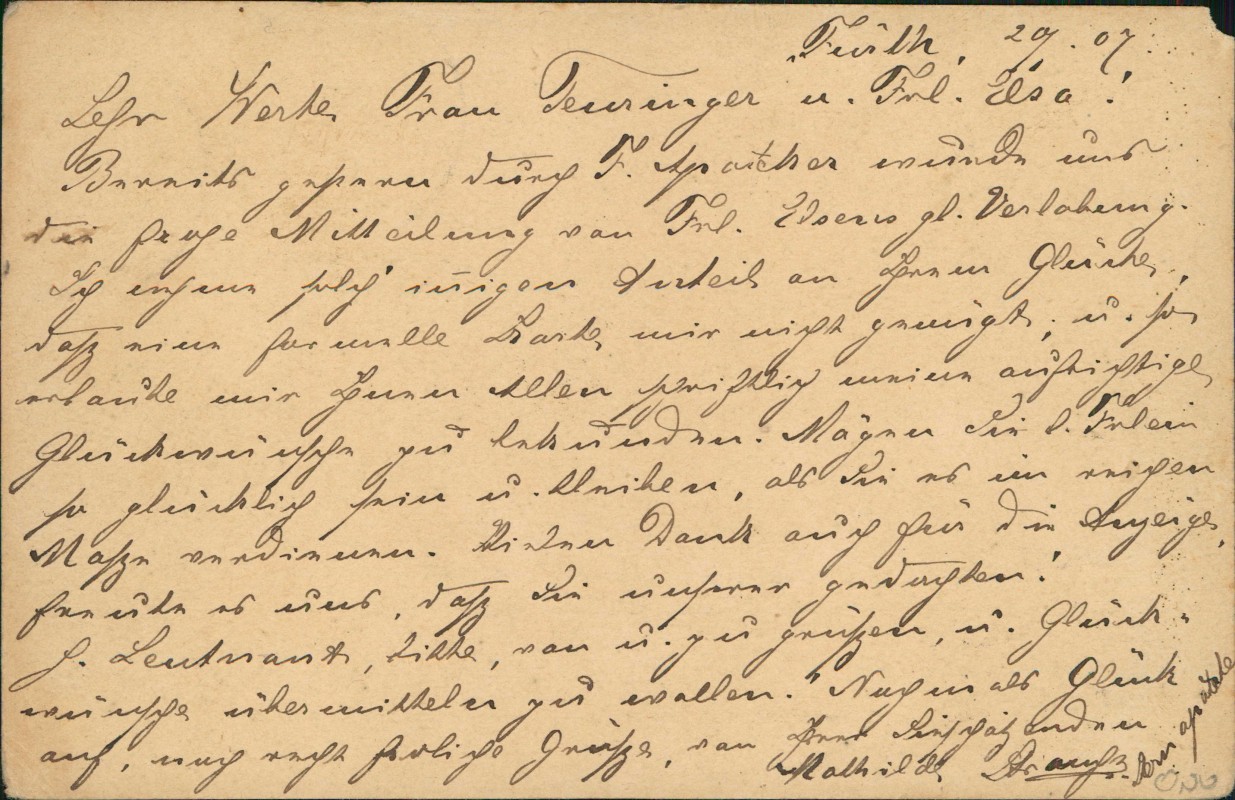 Fürth, 29. 07.
Sehr Werte Frau Teuringer u. Frl. Elsa!
Bereits gestern durch F. Apotheker wurde uns
die frohe Mitteilung von Frl. Elsens gl. Verlobung.
Ich nehme solch' innigen Anteil an Ihrem Glücke,
daß eine formelle Karte mir nicht genügt, u. so
erlaube mir Ihnen Allen schriftlich meine aufrichtige
Glückwünsche zu bekunden. Mögen Sie l. Frlein
so glücklich sein u. bleiben, als Sie es im reichen
Maße verdienen. Vielen Dank auch für die Anzeige,
freute es uns, daß Sie unserer gedachten!
H. Leutnant, bitte, von u. zu grüßen, u. Glück-
wünsche übermitteln zu wollen. Nochmals Glück
auf, noch recht herzliche Grüße, von Ihrer Sieschätzenden
Mathilde